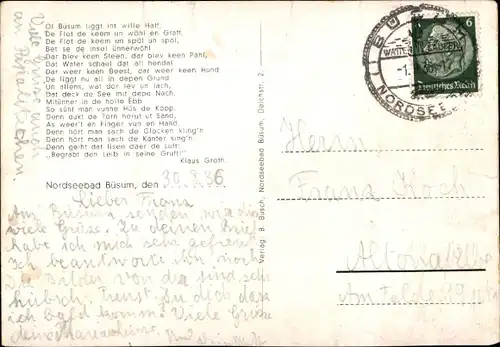 Ol Büsum liggt int wille Haff,
De Flot de keem un wöhl en Graff.
De Flot de keem un spöl un spol,
Bet se de Insel ünnerwöhl
Dar blev keen Steen, dar blev keen Pahl,
Dat Water schael dat all hendal
Dar weer keen Beest, dar weer keen Hund
De liggt nu all in depen Grund
Un allens, wat dor lev un lach,
Dat deck de See mit depe Nach.
Mitünner in de holle Ebb
So süht man vunne Hüs de Köpp.
Denn dukt de Torn herut ut Sand,
As weer't en Finger vun en Hand.
Denn hört man sach de Glocken kling'n
Denn hört man sach de Kanter sing'n
Denn geiht dat lisen daer de Luft:
„Begrabt den Leib in seine Gruft!"
Klaus Groth.
Nordseebad Büsum, den 30.8.36
Lieber Franz
Aus Büsum senden wir dir
viele Grüße. Zu deinen Brief
habe ich mich sehr gefreut.
Ich beantworte ihn noch.
Die Bilder von dir sind sehr
hübsch. Freust Du dich dass
ich bald komme? Viele Grüße
Viele Grüße auch
an
Verlag B. Busch, Nordseebad Büsum, Deichstr. 2.
BÜSUM
NORDSEE
6
Deutsches Reich
Herrn
Franz Koch
Altona/Elbe
Am Felde 99